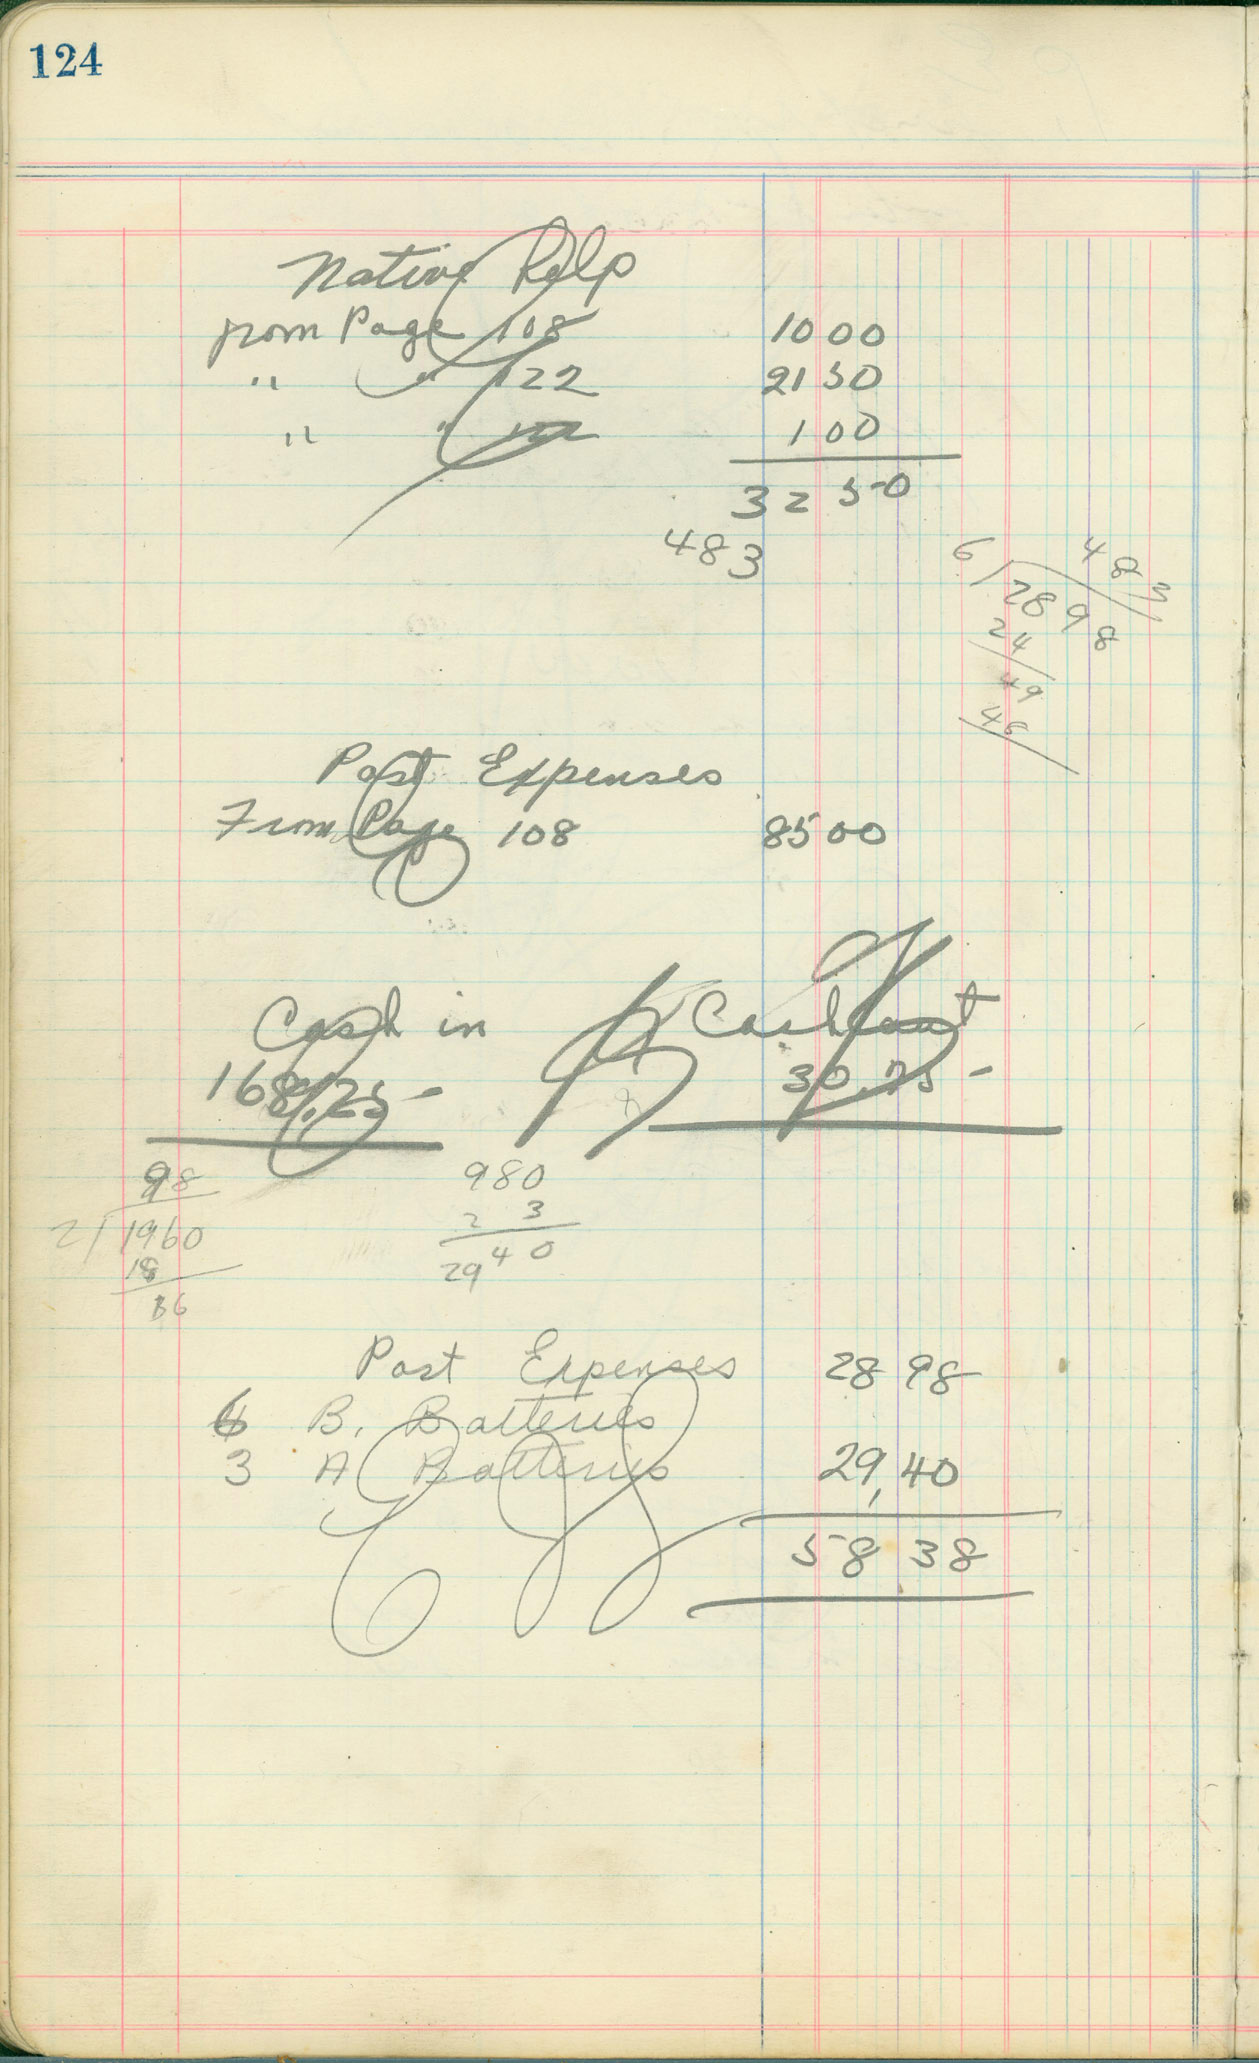 124
Native Help
from Page 108 10 00
" " 122 21 50
" " 1 00
32 50
483
483
6/2898
24
49
48
Post Expenses
From Page 108 85 00
Cash in Cash out
168.25- 30.75-
98
2/1960
18
16
980
2 3
2940
Post Expenses 28 98
6 B. Batteries
3 A Batteries 29,40
58 38